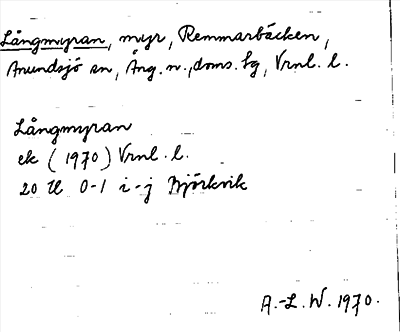 Långmyran, myr, Remmarbäcken,
Anundsjö sn, Ång. n., doms. bg, Vrnl. l.
Långmyran
ek (1970) Vrnl. l.
20 H 0-1 i-j Björkvik
A.-L. W. 1970.